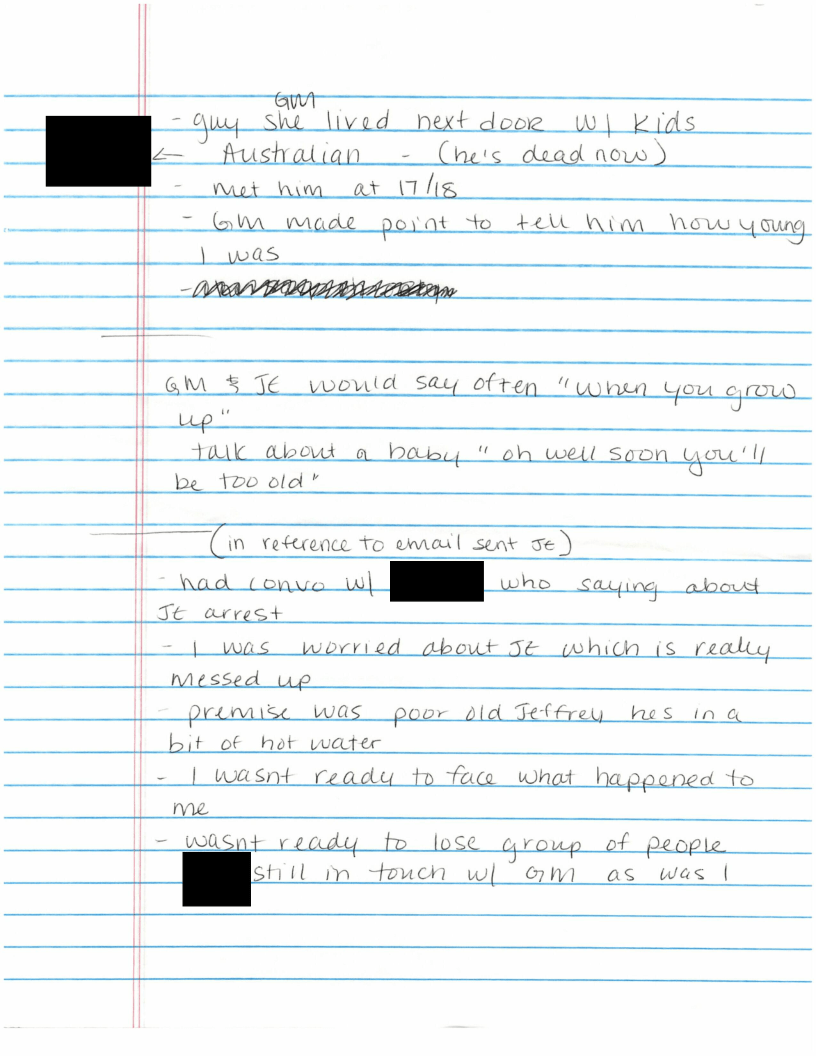 GM
- guy she lived next door w/ kids
← Australian - (he's dead now)
- met him at 17/18
- GM made point to tell him how young
I was
-
GM & JE would say often "when you grow
up"
talk about a baby "oh well soon you'll
be too old"
(in reference to email sent JE)
- had convo w/ who saying about
JE arrest
- I was worried about JE which is really
messed up
- premise was poor old Jeffrey hes in a
bit of hot water
- I wasnt ready to face what happened to
me
- wasnt ready to lose group of people
still in touch w/ GM as was I